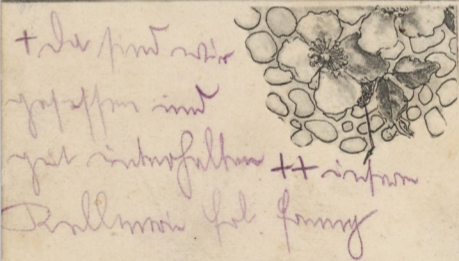 + Da sind wir
gesessen und
gut unterhalten ++ unsere
Kellnerin Frl. Fanny